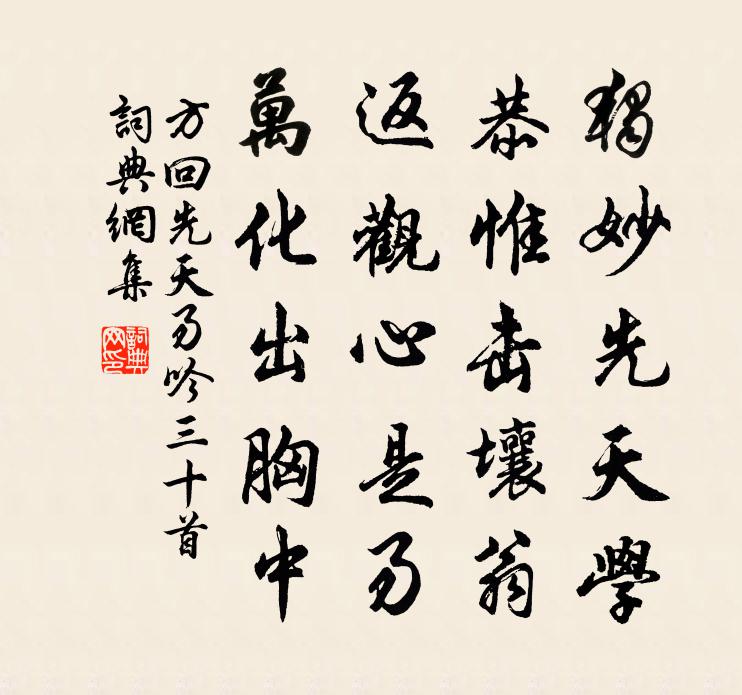 獨妙先天學
恭惟击壤翁
返觀心是易
萬化出胸中
方回先天易吟三十首
詞典網集
詞典网印